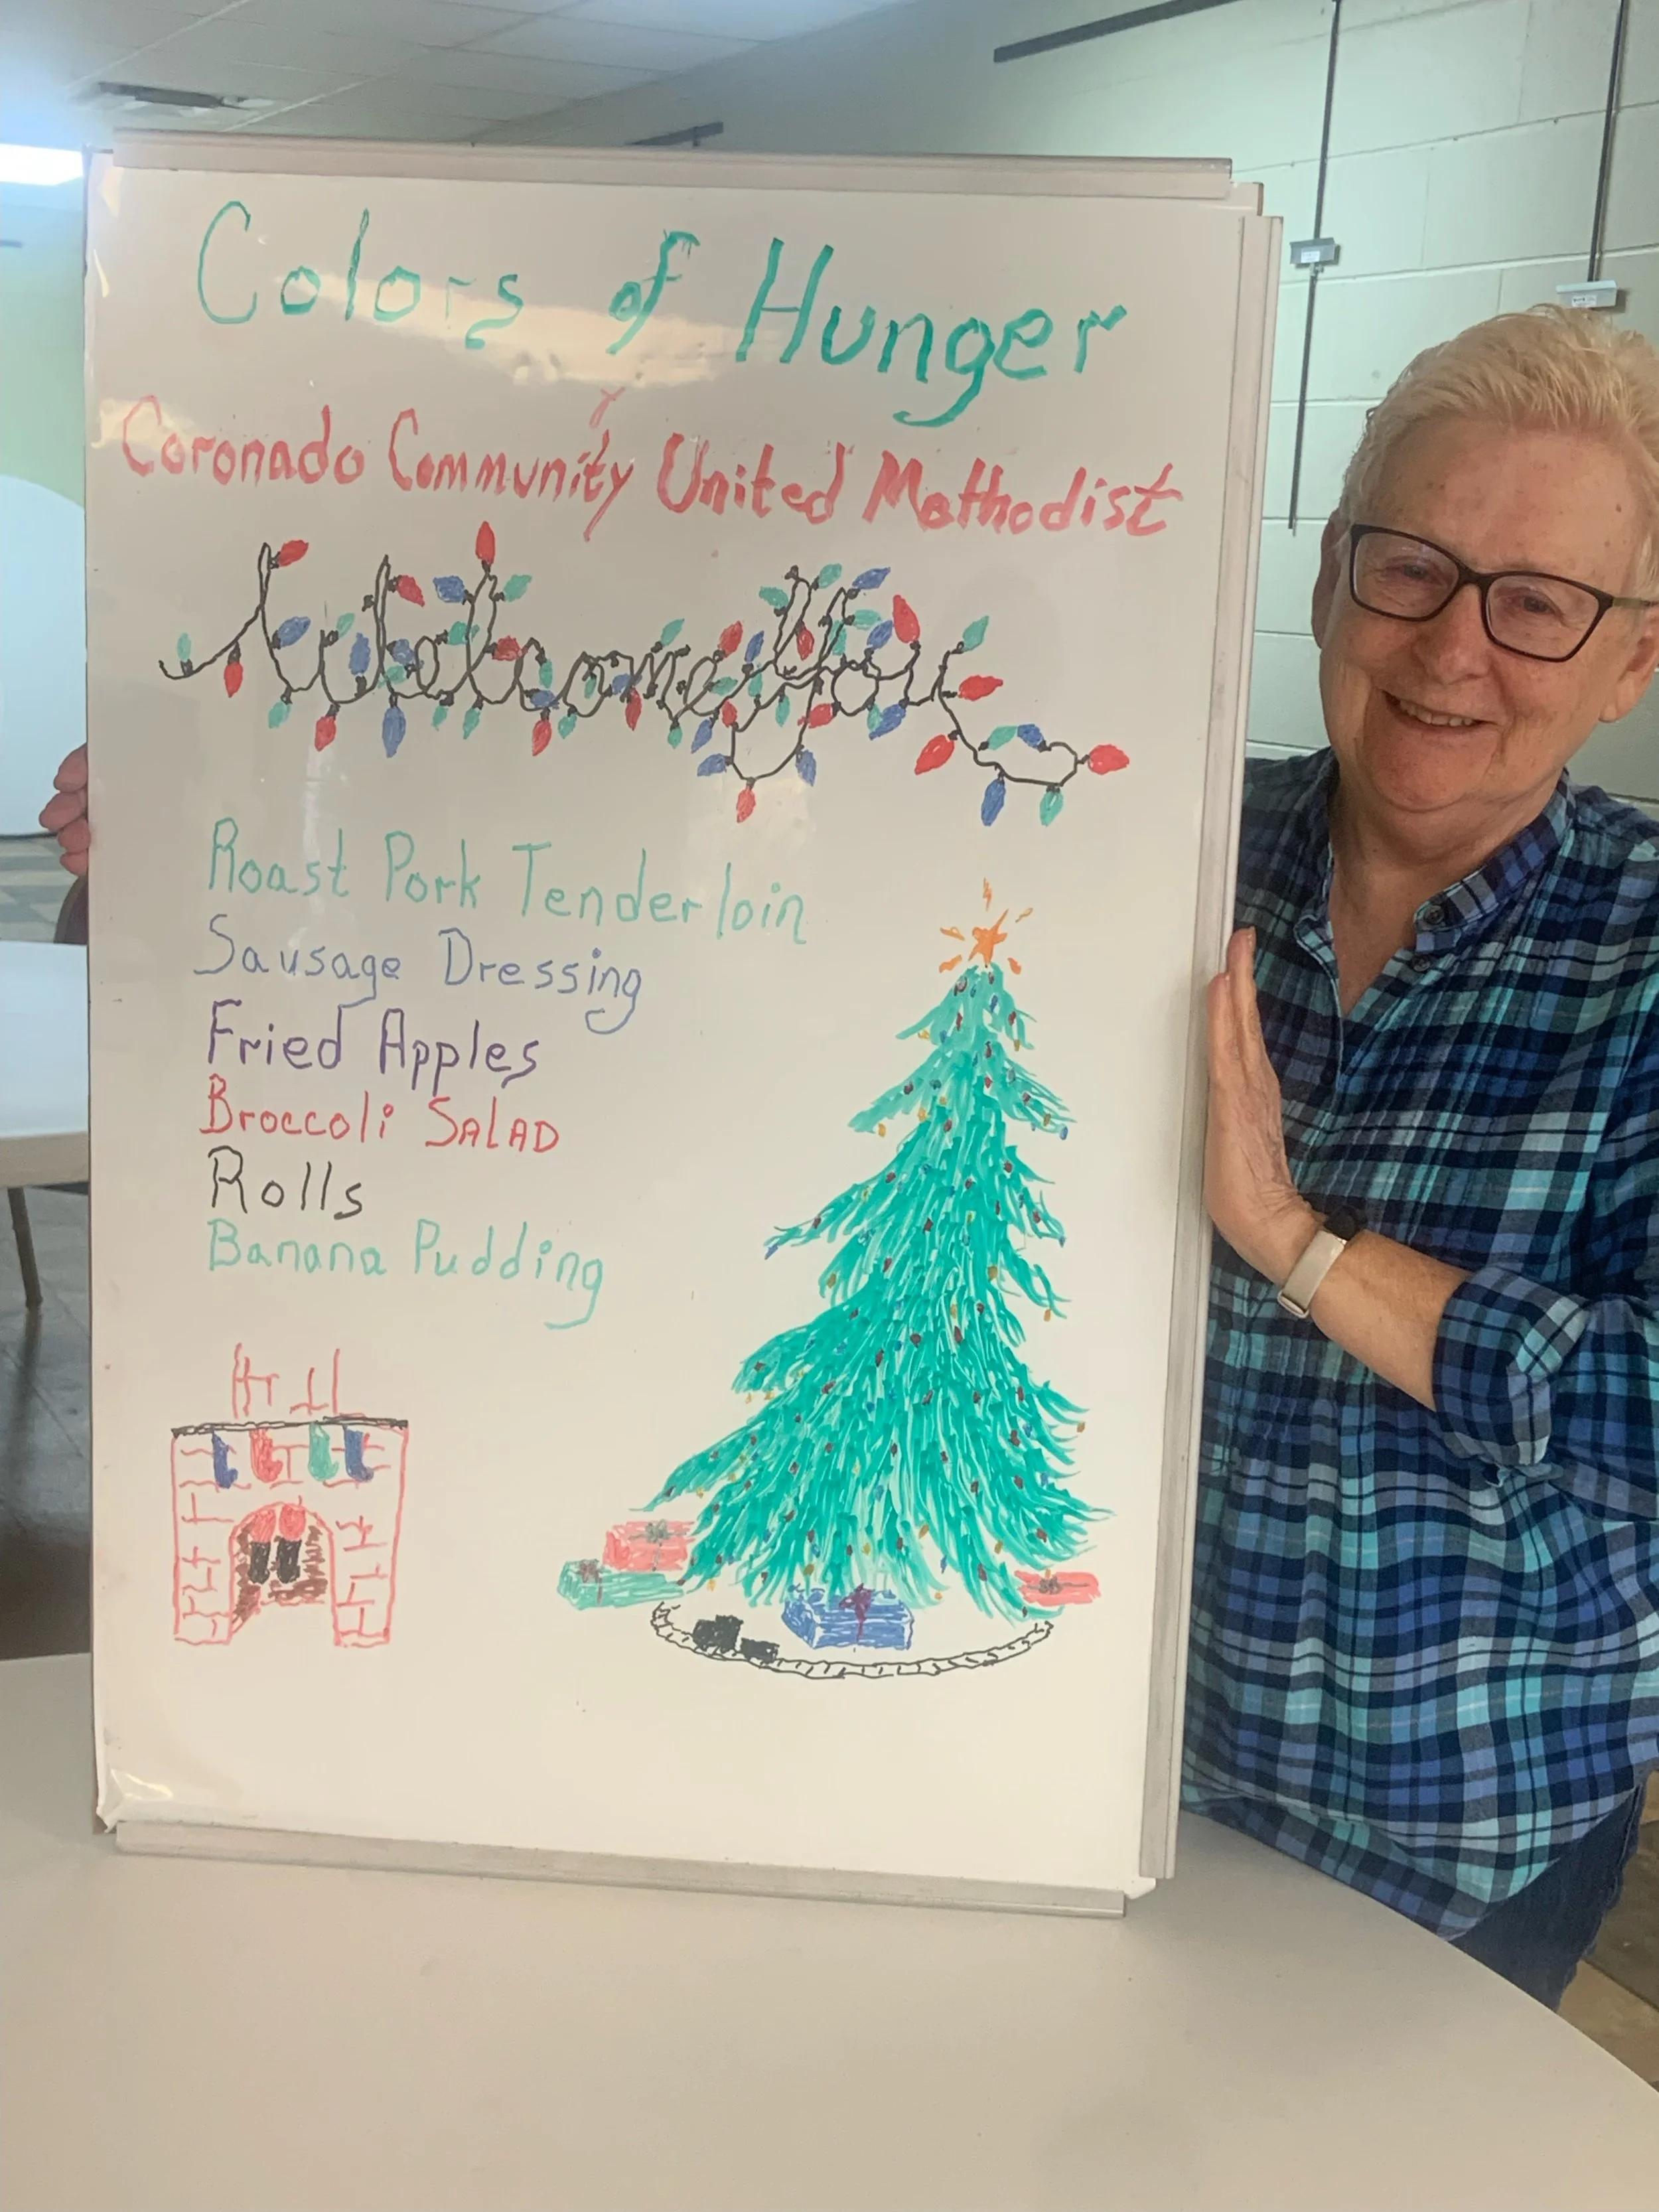 Colors of Hunger
Coronado Community United Methodist
Welcomes You
Roast Pork Tenderloin
Sausage Dressing
Fried Apples
Broccoli SALAD
Rolls
Banana Pudding